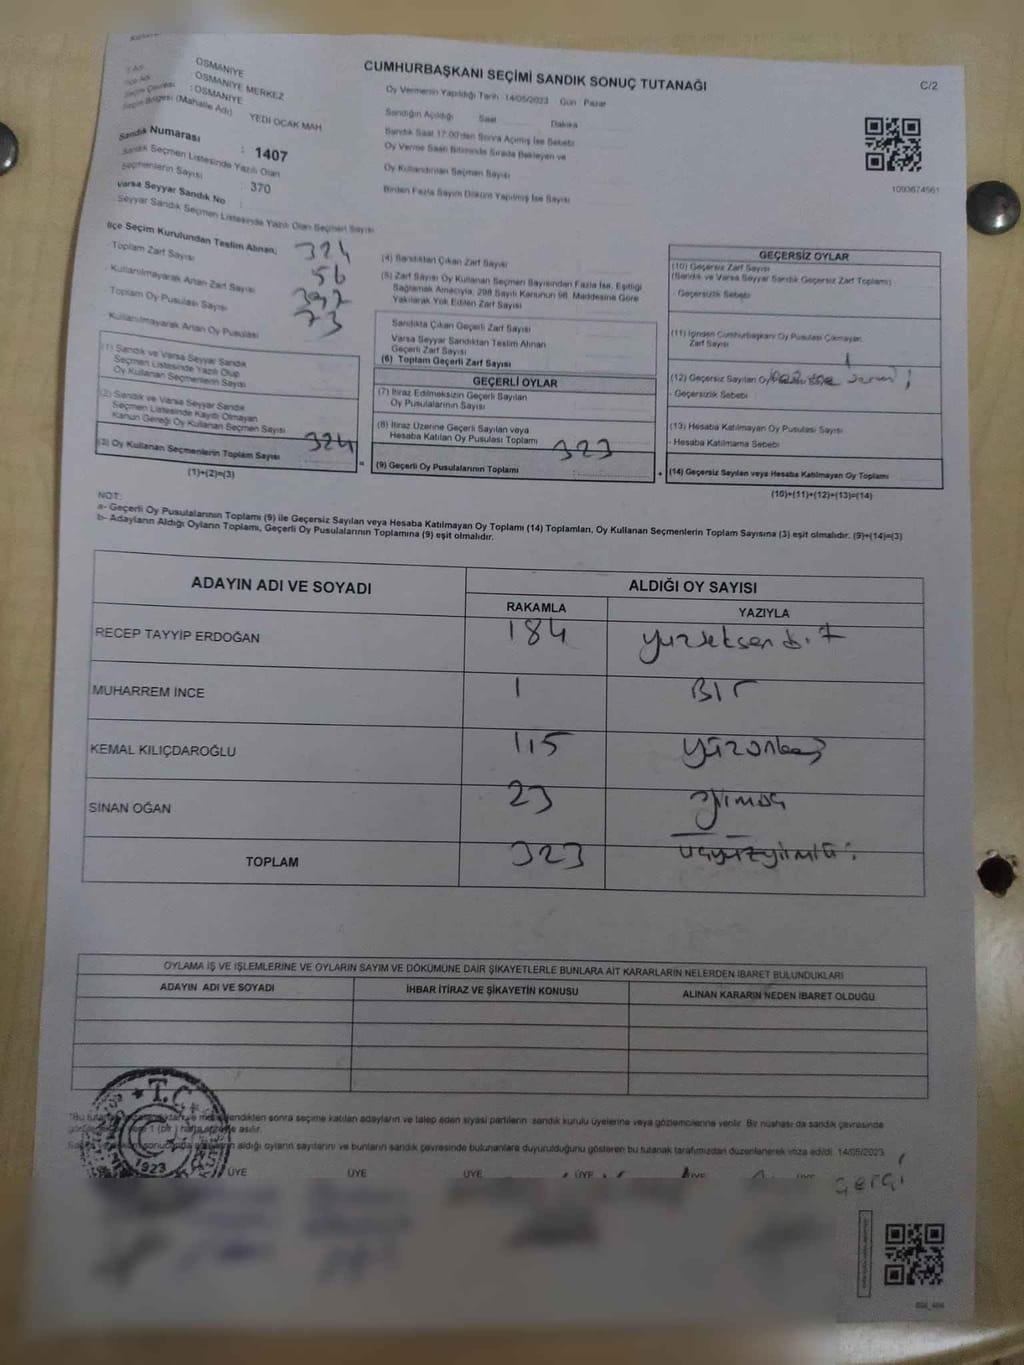 CUMHURBAŞKANI SEÇİMİ SANDIK SONUÇ TUTANAĞI
C/2
OSMANİYE
OSMANİYE MERKEZ
: OSMANİYE
Seçim Bölgesi (Mahalle Adı) YEDİ OCAK MAH
Sandık Numarası : 1407
Sandık Seçmen Listesinde Yazılı Olan
Seçmenlerin Sayısı : 370
Varsa Seyyar Sandık No :
Seyyar Sandık Seçmen Listesinde Yazılı Olan Seçmen Sayısı
Oy Vermenin Yapıldığı Tarih 14/05/2023 Gün Pazar
Sandığın Açıldığı Saat Dakika
Sandık Saat 17:00'den Sonra Açılmış İse Sebebi
Oy Verme Saati Bitiminde Sırada Bekleyen ve
Oy Kullandırılan Seçmen Sayısı
Birden Fazla Sayım Döküm Yapılmış İse Sayısı
1093674561
İlçe Seçim Kurulundan Teslim Alınan;
Toplam Zarf Sayısı 324
Kullanılmayarak Artan Zarf Sayısı 56
Toplam Oy Pusulası Sayısı
Kullanılmayarak Artan Oy Pusulası 73
(1) Sandık ve Varsa Seyyar Sandık
Seçmen Listesinde Yazılı Olup
Oy Kullanan Seçmenlerin Sayısı
(2) Sandık ve Varsa Seyyar Sandık
Seçmen Listesinde Kayıtlı Olmayan
Kanun Gereği Oy Kullanan Seçmen Sayısı
(3) Oy Kullanan Seçmenlerin Toplam Sayısı 324
(1)+(2)=(3)
(4) Sandıktan Çıkan Zarf Sayısı
(5) Zarf Sayısı Oy Kullanan Seçmen Sayısından Fazla İse, Eşitliği
Sağlamak Amacıyla, 298 Sayılı Kanunun 98. Maddesine Göre
Yakılarak Yok Edilen Zarf Sayısı
Sandıkta Çıkan Geçerli Zarf Sayısı
Varsa Seyyar Sandıktan Teslim Alınan
Geçerli Zarf Sayısı
(6) Toplam Geçerli Zarf Sayısı
GEÇERLİ OYLAR
(7) İtiraz Edilmeksizin Geçerli Sayılan
Oy Pusulalarının Sayısı
(8) İtiraz Üzerine Geçerli Sayılan veya
Hesaba Katılan Oy Pusulası Toplamı
(9) Geçerli Oy Pusulalarının Toplamı 323
GEÇERSİZ OYLAR
(10) Geçersiz Zarf Sayısı
(Sandık ve Varsa Seyyar Sandık Geçersiz Zarf Toplamı)
- Geçersizlik Sebebi
(11) İçinden Cumhurbaşkanı Oy Pusulası Çıkmayan
Zarf Sayısı
(12) Geçersiz Sayılan Oy
- Geçersizlik Sebebi
(13) Hesaba Katılmayan Oy Pusulası Sayısı
- Hesaba Katılmama Sebebi
(14) Geçersiz Sayılan veya Hesaba Katılmayan Oy Toplamı
(10)+(11)+(12)+(13)=(14)
NOT:
a- Geçerli Oy Pusulalarının Toplamı (9) ile Geçersiz Sayılan veya Hesaba Katılmayan Oy Toplamı (14) Toplamları, Oy Kullanan Seçmenlerin Toplam Sayısına (3) eşit olmalıdır. (9)+(14)=(3)
b- Adayların Aldığı Oyların Toplamı, Geçerli Oy Pusulalarının Toplamına (9) eşit olmalıdır.
ADAYIN ADI VE SOYADI
ALDIĞI OY SAYISI
RAKAMLA YAZIYLA
RECEP TAYYİP ERDOĞAN 184
MUHARREM İNCE 1 BİR
KEMAL KILIÇDAROĞLU 115 yüzonbeş
SİNAN OĞAN 23
TOPLAM 323
OYLAMA İŞ VE İŞLEMLERİNE VE OYLARIN SAYIM VE DÖKÜMÜNE DAİR ŞİKAYETLERLE BUNLARA AİT KARARLARIN NELERDEN İBARET BULUNDUKLARI
ADAYIN ADI VE SOYADI İHBAR İTİRAZ VE ŞİKAYETİN KONUSU ALINAN KARARIN NEDEN İBARET OLDUĞU
T.C.
1923
sonra seçime katılan adayların ve talep eden siyasi partilerin sandık kurulu üyelerine veya gözlemcilerine verilir. Bir nüshası da sandık çevresinde
asılır.
aldığı oyların sayılarını ve bunların sandık çevresinde bulunanlara duyurulduğunu gösteren bu tutanak tarafımızdan düzenlenerek imza edildi. 14/05/2023
ÜYE ÜYE ÜYE ÜYE ÜYE